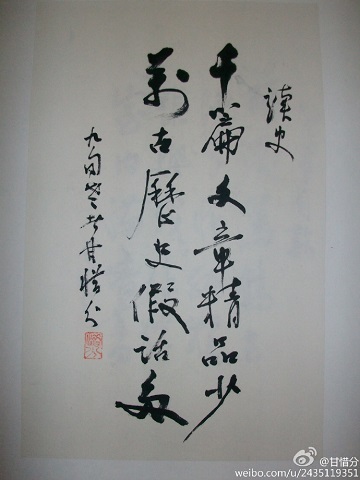 讀史
千篇文章精品少
萬古歷史假話多
九旬叟甘惜分
@甘惜分
weibo.com/u/2435119351